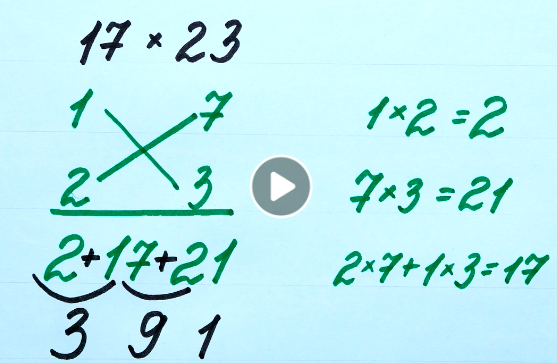 17 × 23
1 7
2 3
2+17+21
3 9 1
1×2=2
7×3=21
2×7+1×3=17